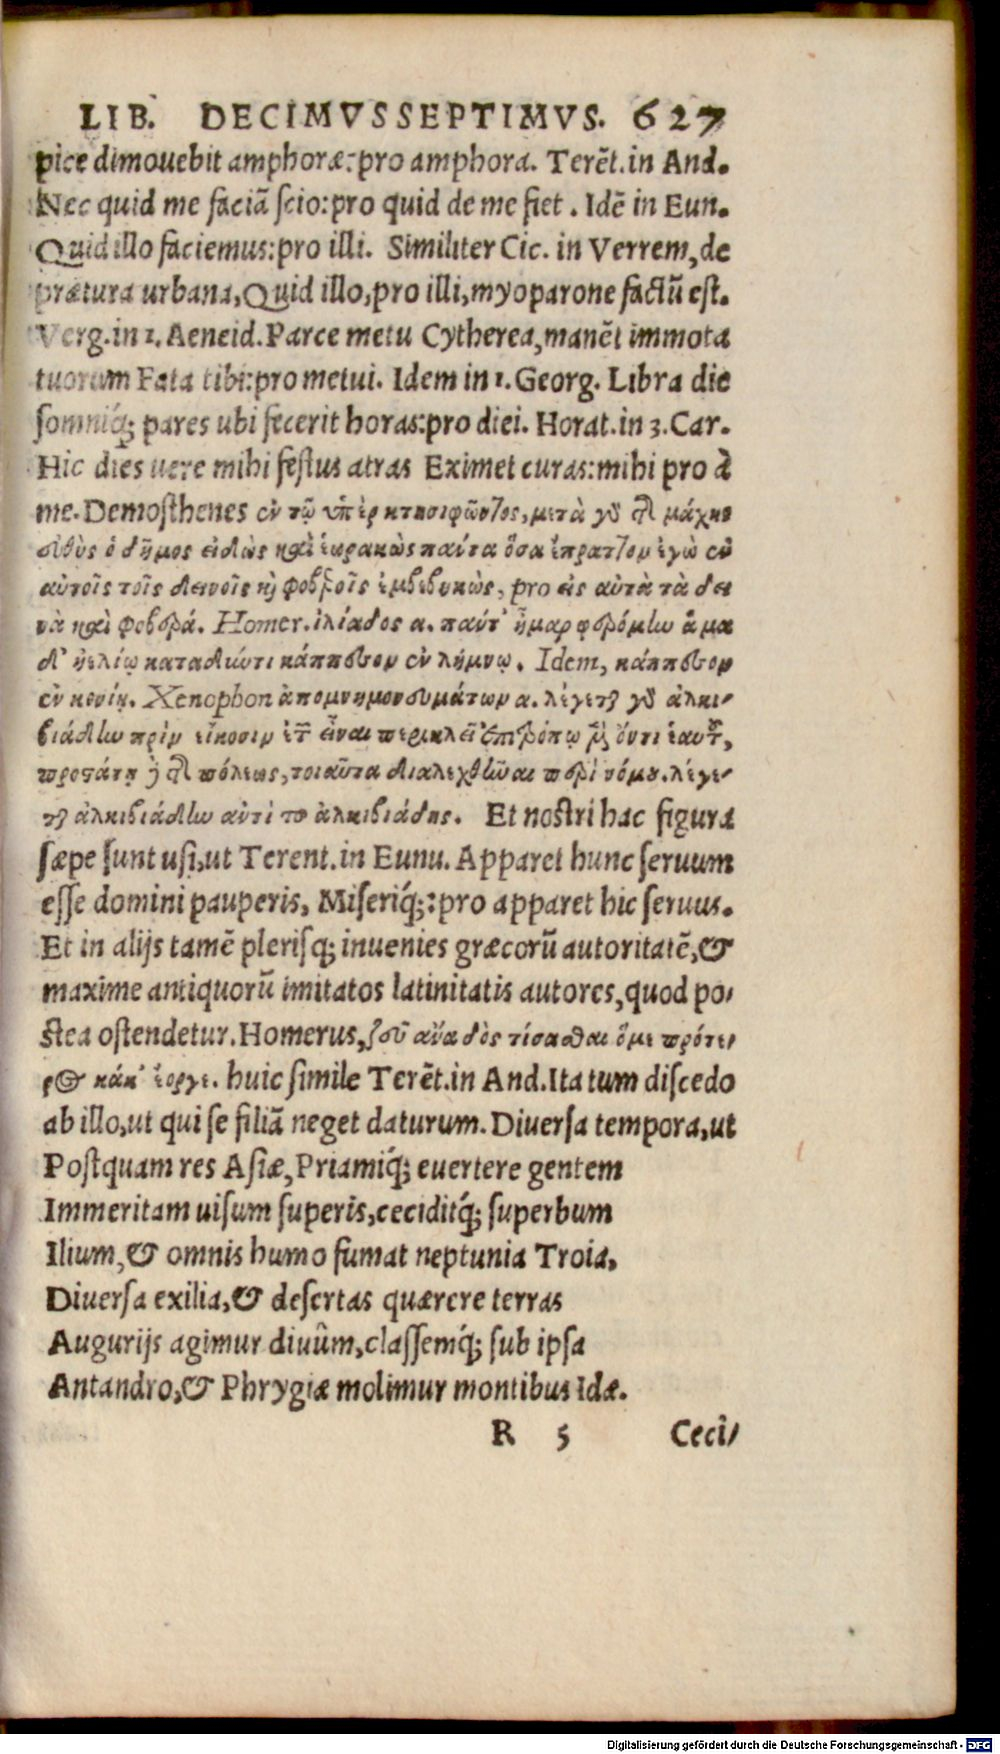 LIB. DECIMVSSEPTIMVS. 627
pice dimouebit amphoræ: pro amphora. Terẽt. in And.
Nec quid me faciã scio: pro quid de me fiet. Idẽ in Eun.
Quid illo faciemus: pro illi. Similiter Cic. in Verrem, de
prætura urbana, Quid illo, pro illi, myoparone factũ est.
Verg. in 1. Aeneid. Parce metu Cytherea, manẽt immota
tuorum Fata tibi: pro metui. Idem in 1. Georg. Libra die
somniq́; pares ubi fecerit horas: pro diei. Horat. in 3. Car.
Hic dies uere mihi festus atras Eximet curas: mihi pro à
me. Demosthenes ἐν τῷ ὑπὲρ κτησιφῶντος, μετὰ γὸ τὴν μάχην
εὐθὺς ὁ δῆμος εἰδὼς καὶ ἑωρακὼς πάντα ὅσα ἔπραττον ἐγὼ ἐν
αὐτοῖς τοῖς δεινοῖς κὶ φοβεροῖς ἐμβεβηκὼς, pro εἰς αὐτὰ τὰ δει
νὰ καὶ φοβερά. Homer. ἰλίαδος α. παύτ' ἦμαρ φερόμην ἅμα
δ' ἠελίῳ καταδιώτι κάππεσον ἐν λήμνῳ. Idem, κάππεσον
ἐν κονίῃ. Xenophon ἀπομνημονευμάτων α. λέγεται γὸ ἀλκι-
βιάδην πρὶν εἴκοσιν ἐτ̃ εἶναι περικλεῖ ἐπιτρόπῳ μ̃ ὄντι ἑαυτ̃,
προστάτῃ ὐ τῆς πόλεως, τοιαῦτα διαλεχθῆναι περὶ νόμου. λέγε-
ται ἀλκιβιάδην αὐτὶ το ἀλκιβιάδης. Et nostri hac figura
sæpe sunt usi, ut Terent. in Eunu. Apparet hunc seruum
esse domini pauperis, Miseriq́;: pro apparet hic seruus.
Et in alijs tamẽ plerisq; inuenies græcorũ autoritatẽ, &
maxime antiquorũ imitatos latinitatis autores, quod po-
stea ostendetur. Homerus, ζεῦ ἄνα δὸς τίσασθαι ὅμε πρότε-
ρος κάκ' ἔοργε. huic simile Terẽt. in And. Ita tum discedo
ab illo, ut qui se filiã neget daturum. Diuersa tempora, ut
Postquam res Asiæ, Priamiq́; euertere gentem
Immeritam uisum superis, ceciditq́; superbum
Ilium, & omnis humo fumat neptunia Troia,
Diuersa exilia, & desertas quærere terras
Augurijs agimur diuûm, classemq́; sub ipsa
Antandro, & Phrygiæ molimur montibus Idæ.
R 5 Ceci-
Digitalisierung gefördert durch die Deutsche Forschungsgemeinschaft - DFG